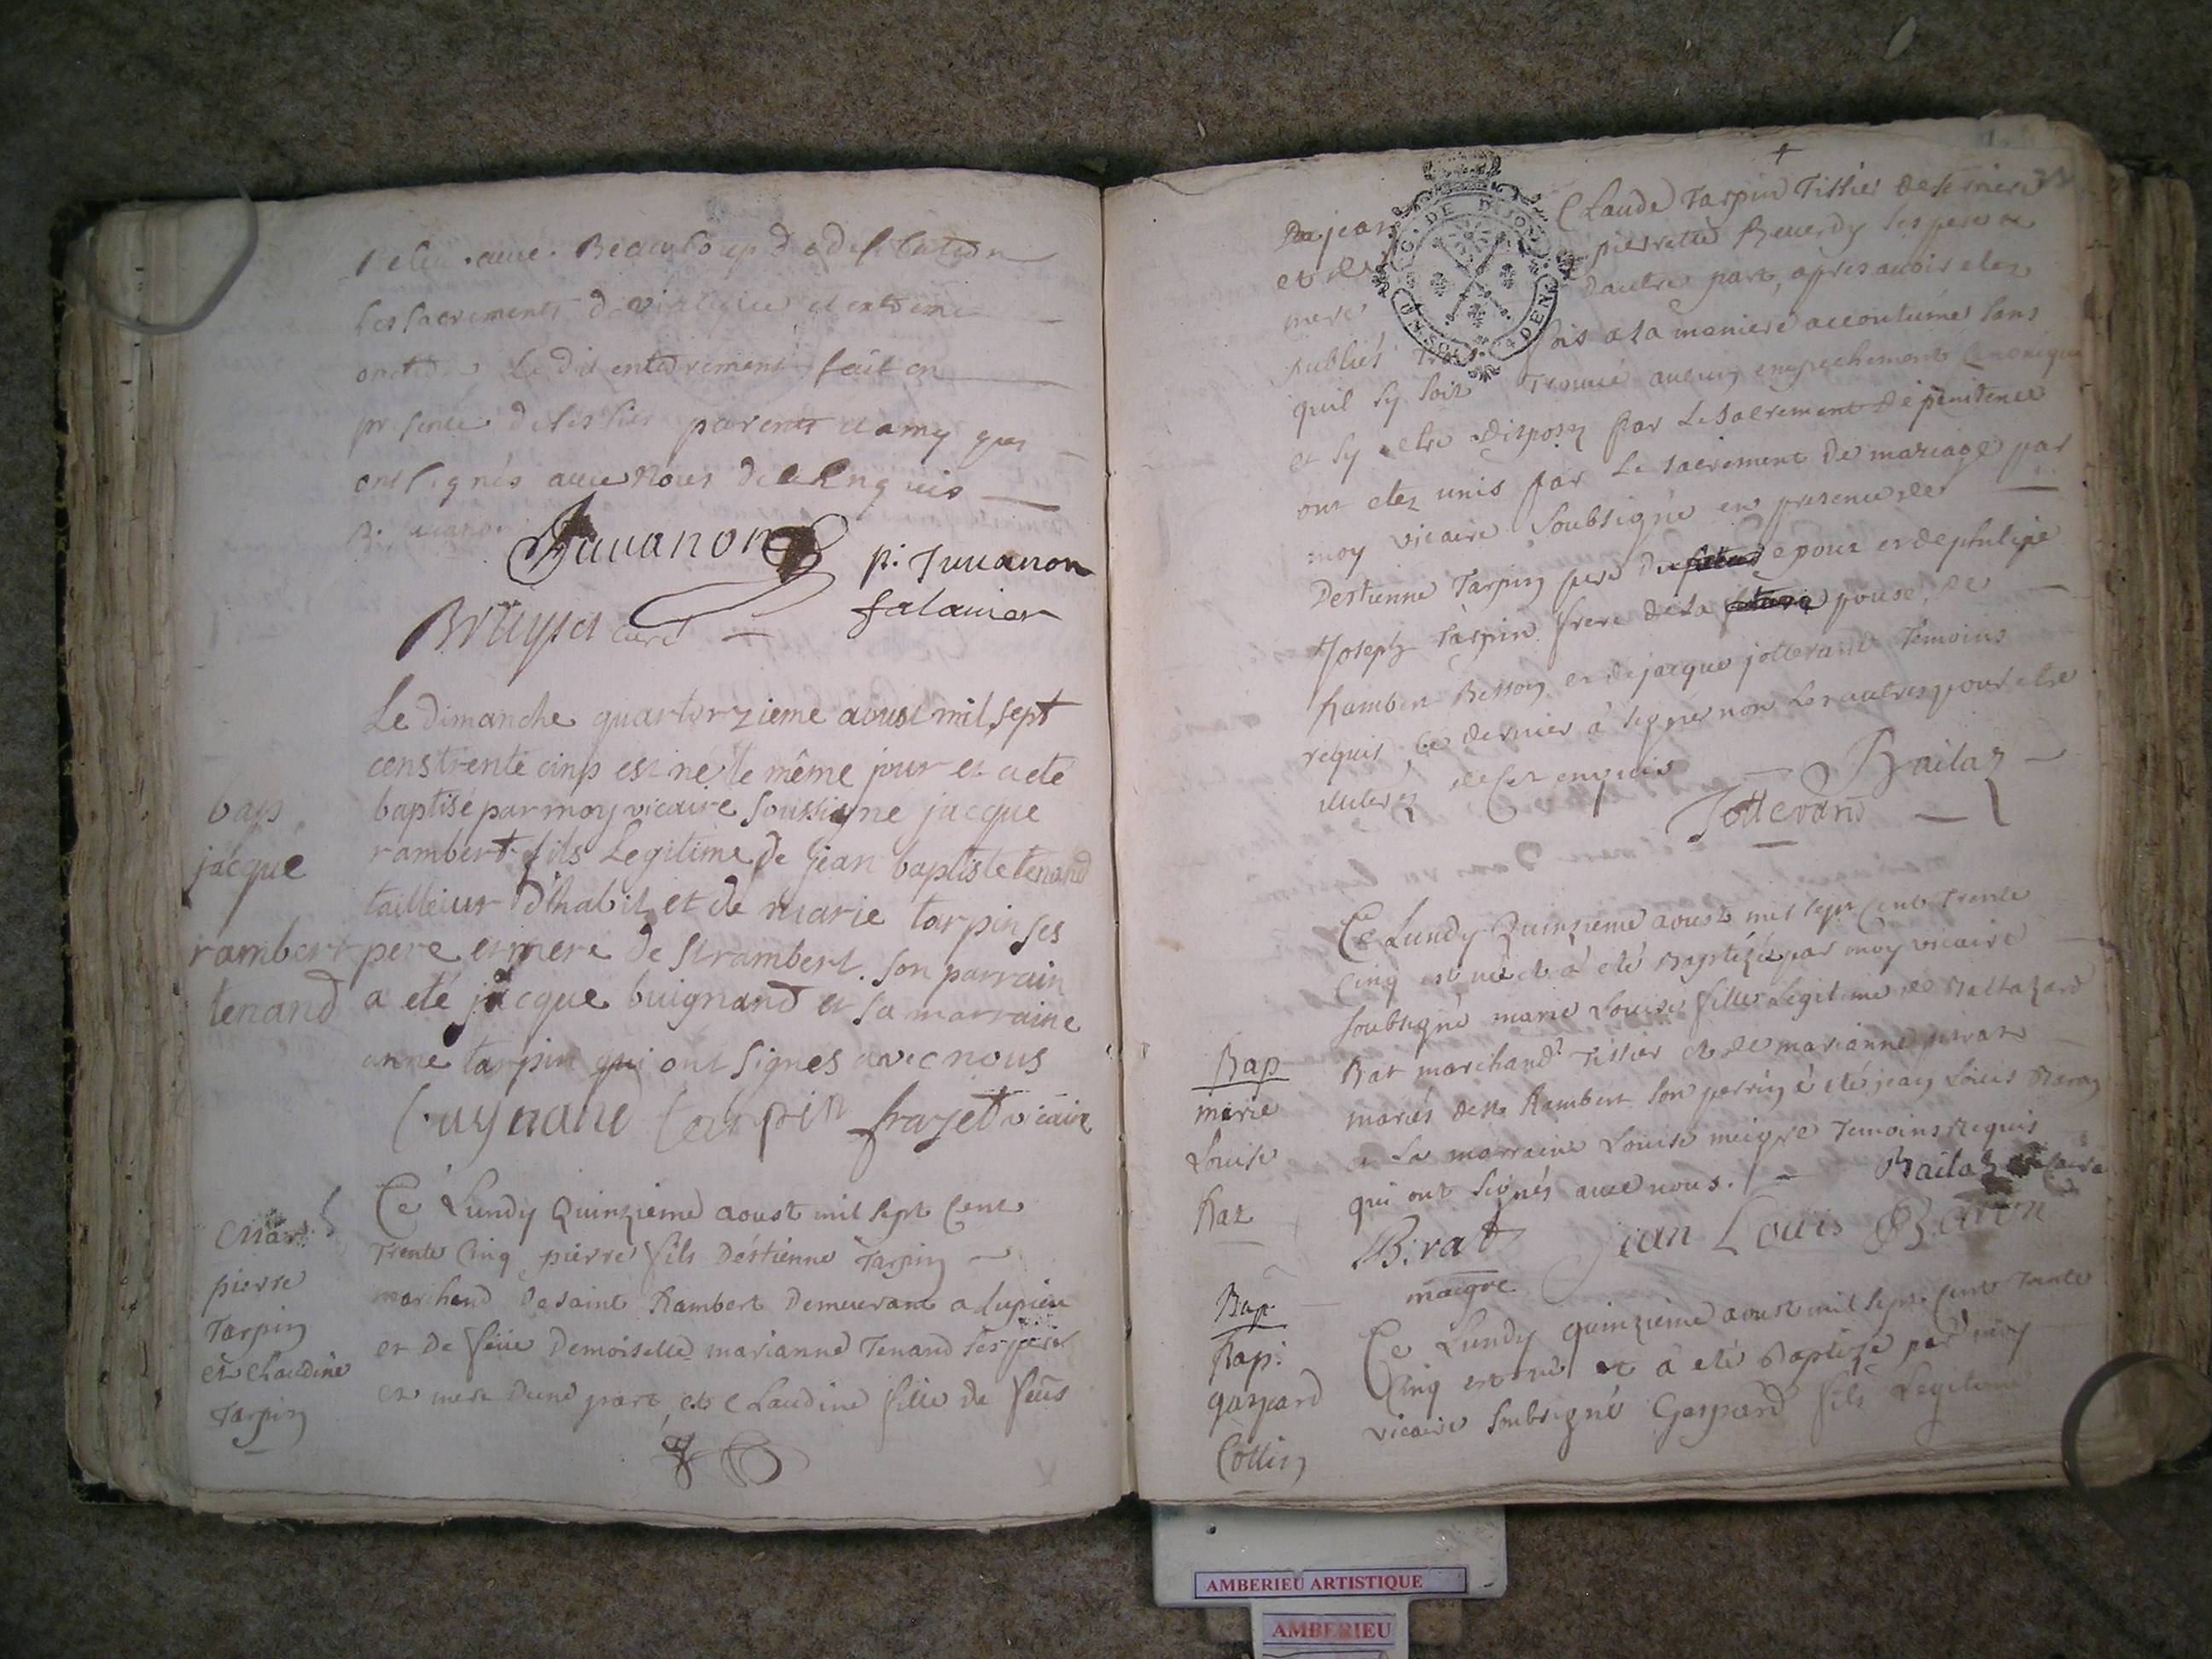 avec Beaucoup dedification
les sacrements de viatique et extreme
onction le dit enterrement fait en
presence de parents et amy qui
ont signés avec Nous de ce enquis
Juuanon
p: Juuanon
falauier
Bruyset curé
Le dimanche quartorzieme aoust mil sept
cens trente cinq est né le même jour et a eté
bap
baptisé par moy vicaire soussigné jacque
jacque
rambert fils Legitime de jean baptiste tenand
tailleiur d'habit et de marie tarpin ses
rambert
pere et mere de st rambert. son parrain
tenand
a eté jacque buignand et sa marraine
anne tarpin qui ont signes avec nous
buynand tarpin frajet vicaire
Mar:
pierre
Tarpin
et claudine
Tarpin
Ce Lundy Quinzieme aoust mil sept cent
trente cinq pierre fils d'éstienne Tarpin
marchand de saint Rambert demeurant a Lupieu
et de feüe Demoiselle marianne Tenand ses pere
et mere dune part, et claudine fille de feus
jean Claude Tarpin Tissier de serriere
et de pierrette Reuerdy ses pere et
mere dautre part, apres auoir etez
publiés trois fois a la maniere accoutumée sans
quil sy soit trouué aucun empechement canonique
et sy etre disposez par le sacrement de penitence
ont etez unis par le sacrement de mariage par
moy vicaire soubsigné en presence de
Destienne Tarpin pere du epoux et de philipe
joseph Tarpin frere de la epouse, de
Rambert Besson et de jacque jotterand temoins
requis, ce dernier à signé non les autres pour etre
illiterez de ce enquis
Bailaz
Jotterand
Ce Lundy Quinzieme aoust mil sept cent trente
cinq est née et a eté Baptizée par moy vicaire
soubsigné marie Louise fille Legitime de Baltazard
Bap
marie
Louise
Rat
Rat marchand Tissier et de marianne
mariés de st Rambert son perrin à eté jean Louis Baron
et la marraine Louise meigre temoins requis
qui ont signés avec nous.
Bailaz vicaire
B: rat jean Louis Baron
maigre
Bap.
Bap:
gaspard
Cottin
Ce Lundy quinzieme aoust mil sept cent trente
cinq est né et à eté Baptizé par moy
vicaire soubsigné Gaspard fils Legitime
G. DE DIJON
AMBERIEU ARTISTIQUE
AMBERIEU